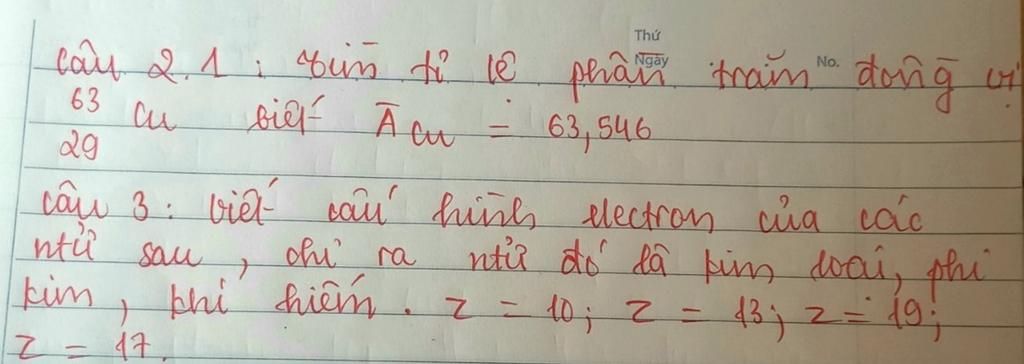 Thứ
Ngày
No.
Câu 2.1 : tìm tỉ lệ phần trăm đồng vị
63
29 Cu biết A̅ Cu = 63,546
Câu 3 : viết cấu hình electron của các
ntử sau , chỉ ra ntử đó là kim loại, phi
kim , khí hiếm . Z = 10; Z = 13; Z = 19;
Z = 17.